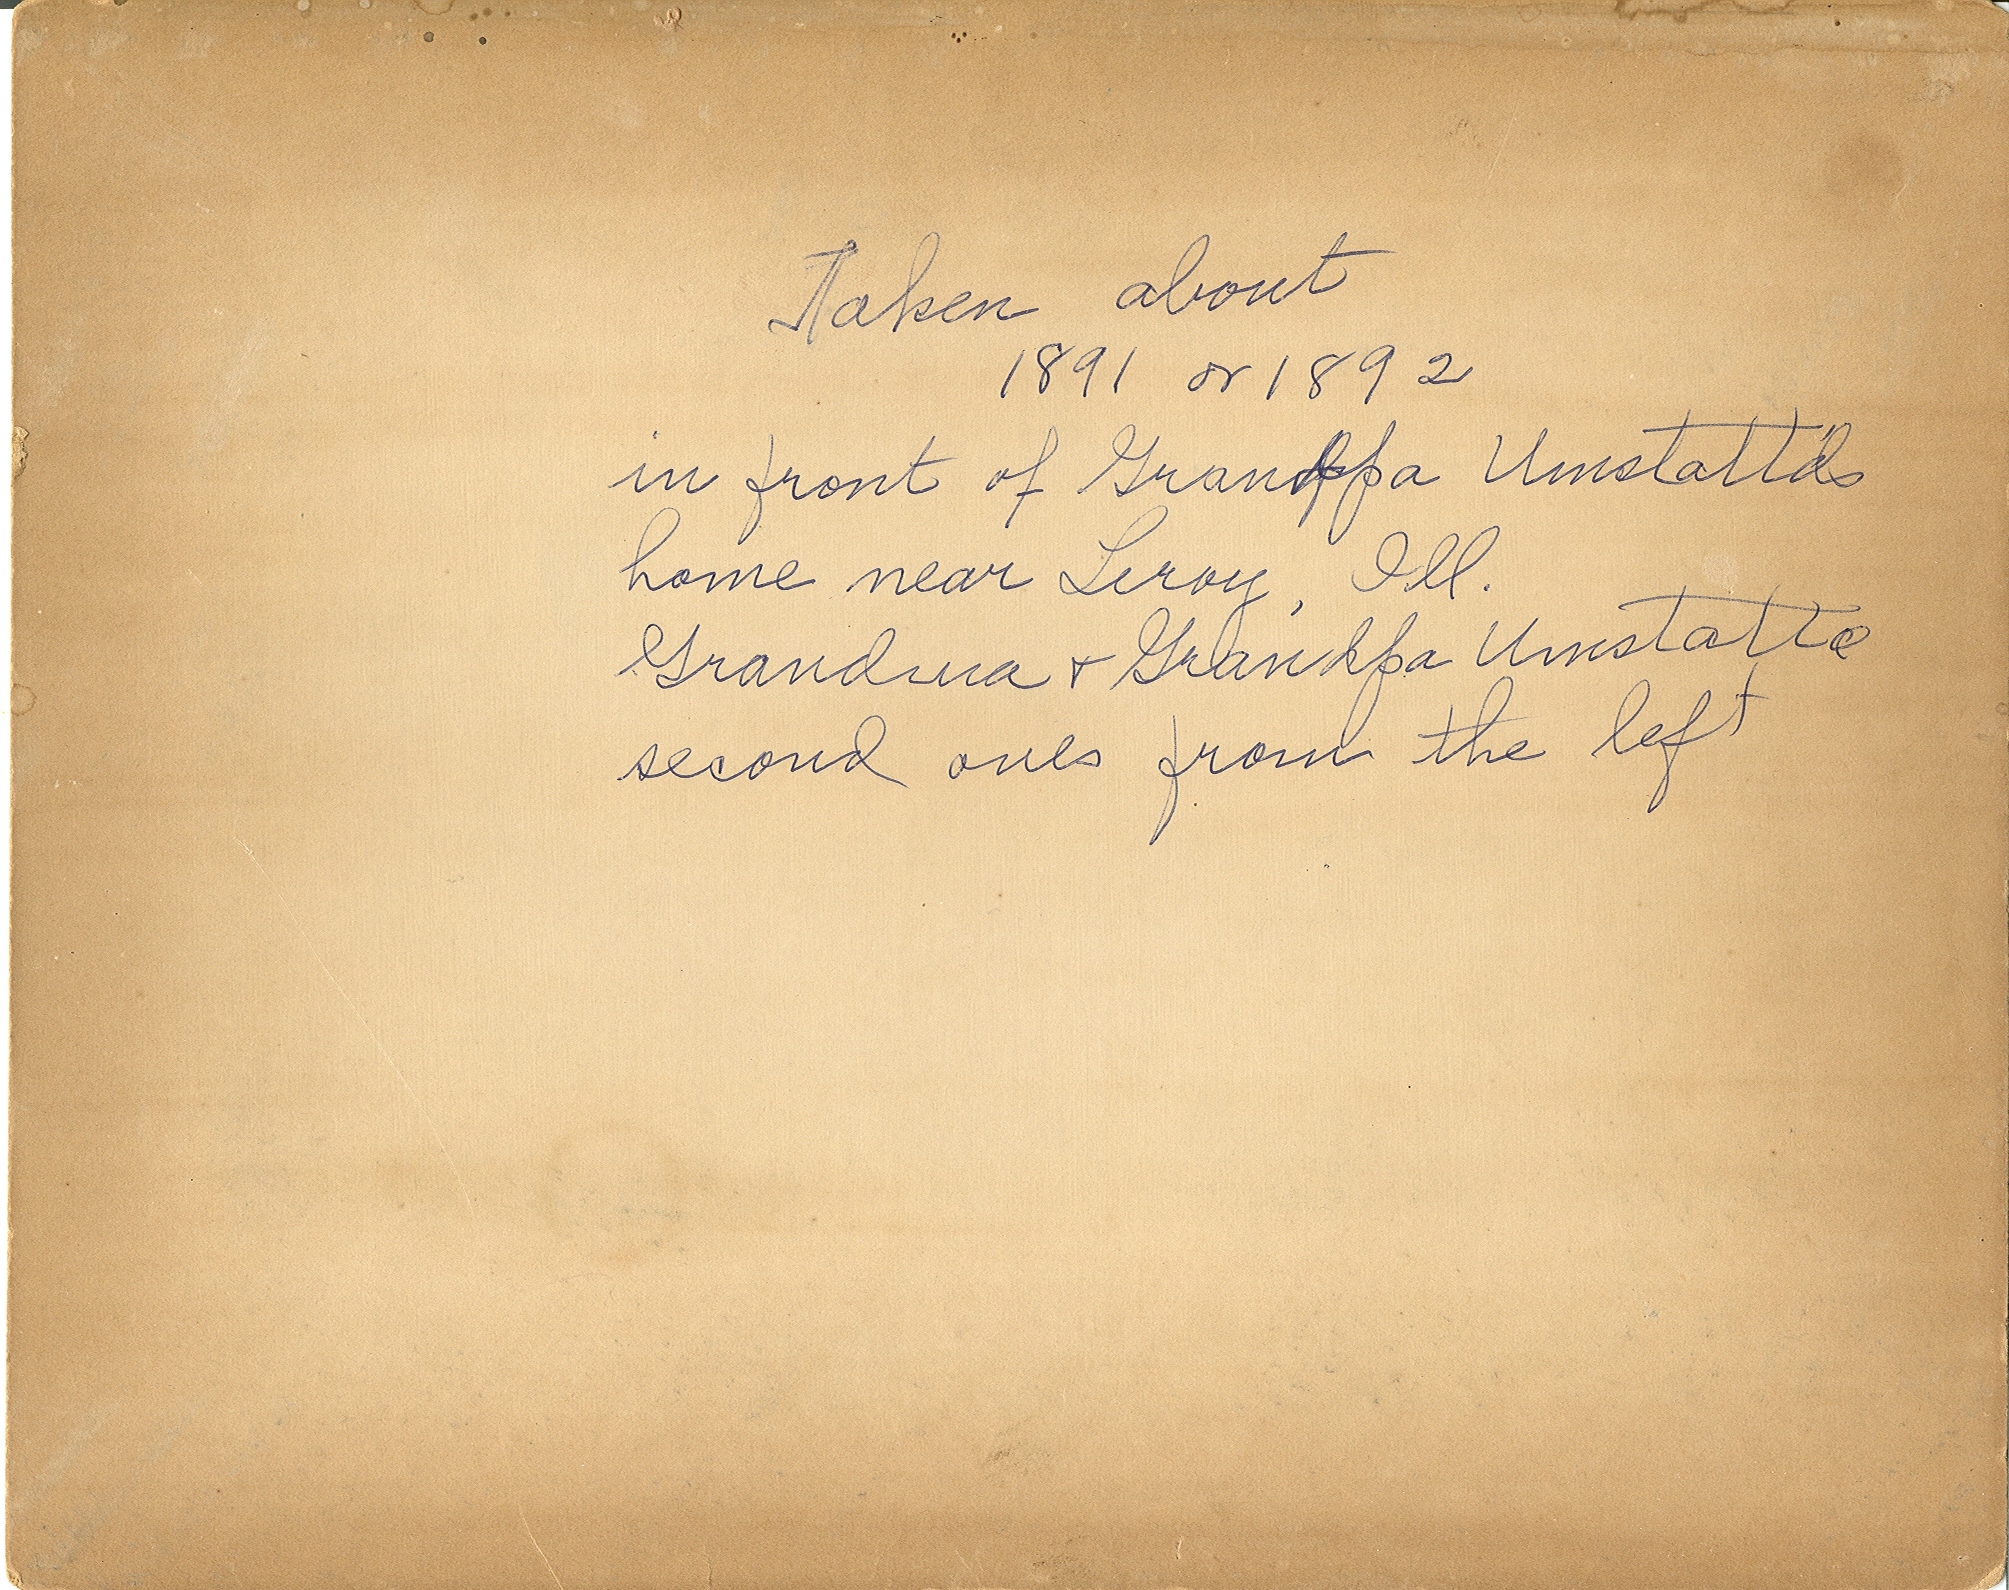 Taken about
1891 or 1892
in front of Grandpa Umstattd's
home near Leroy, Ill.
Grandma & Grandpa Umstattd
second ones from the left